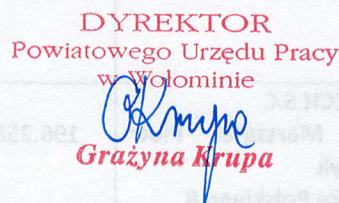 DYREKTOR
Powiatowego Urzędu Pracy
w Wołominie
Grażyna Krupa